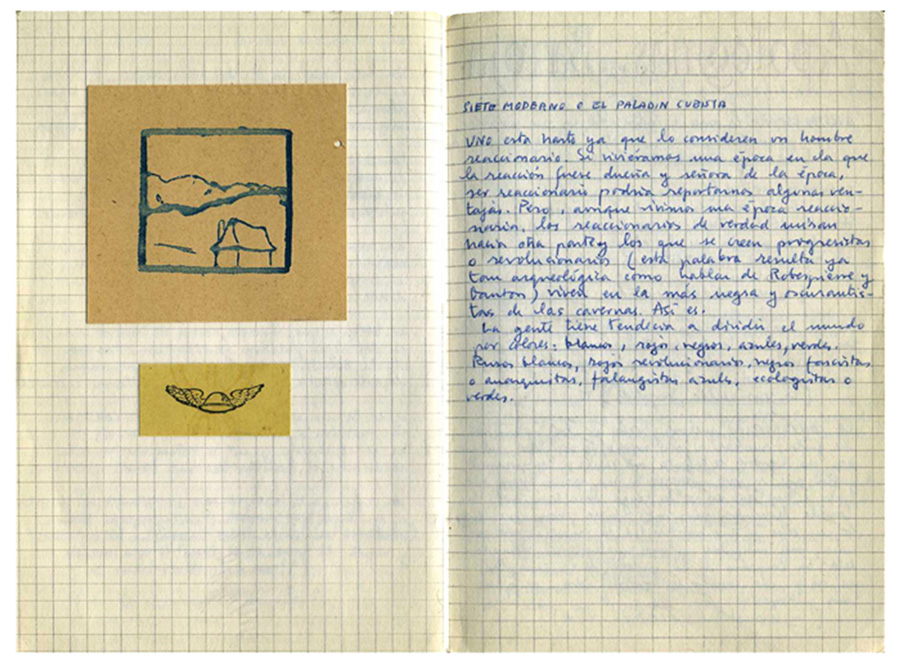 SIETE MODERNO O EL PALADIN CUBISTA
UNO esta harto ya que lo consideren un hombre
reaccionario. Si viviéramos una época en la que
la reacción fuese dueña y señora de la época,
ser reaccionario podría reportarnos algunas ven-
tajas. Pero, aunque vivimos una época reaccio-
naria, los reaccionarios de verdad miran
hacia otra parte y los que se creen progresistas
o revolucionarios (esta palabra resulta ya
tan arqueológica como hablar de Robespierre y
Danton) viven en la más negra y oscurantis-
tas de las cavernas. Así es.
La gente tiene tendecia a dividir el mundo
por colores: blancos, rojos, negros, azules, verdes.
Rusos blancos, rojos revolucionarios, negros fascistas
o anarquistas, falangistas azules, ecologistas o
verdes.